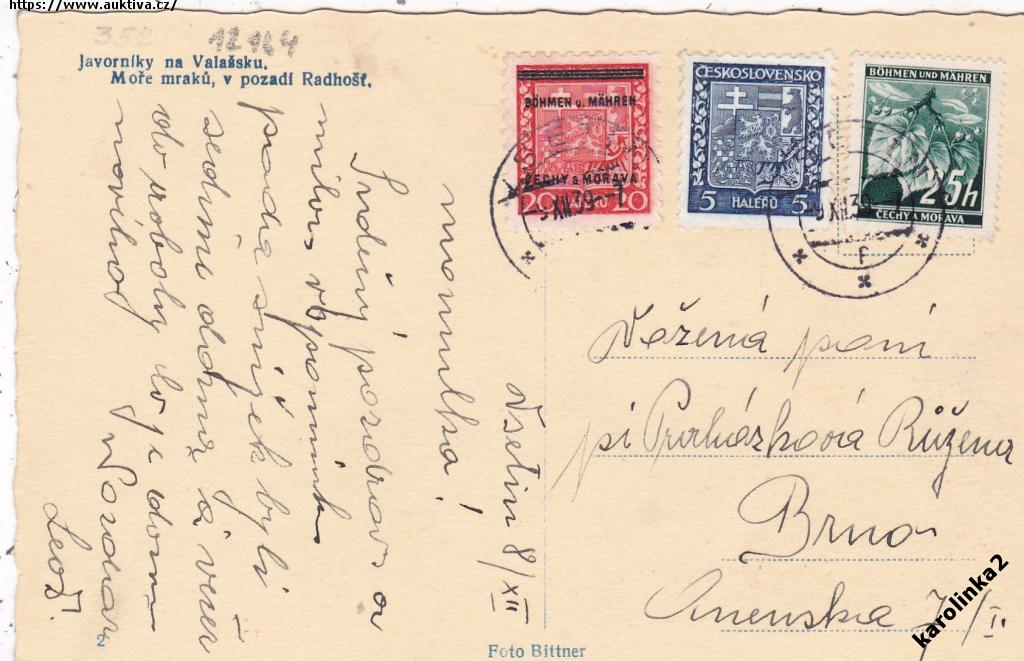 https://www.auktiva.cz/
352
12144
Javorníky na Valašsku.
Moře mraků, v pozadí Radhošť.
BÖHMEN u. MÄHREN
ČECHY a MORAVA
20 20
ČESKOSLOVENSKO
5 HALÉŘŮ 5
BÖHMEN UND MÄHREN
25h
ČECHY A MORAVA
XII 39
XII 39
F
Vsetín 8/XII
maminka!
Srdečný pozdrav a
milou vzpomínku
padá sníjek byli
sedmi doma a večer
do roboty
Pozdrav
Leoš.
Vážená paní
pí Procházková Růžena
Brno
Anenská 7/II
2
Foto Bittner
karolinka2